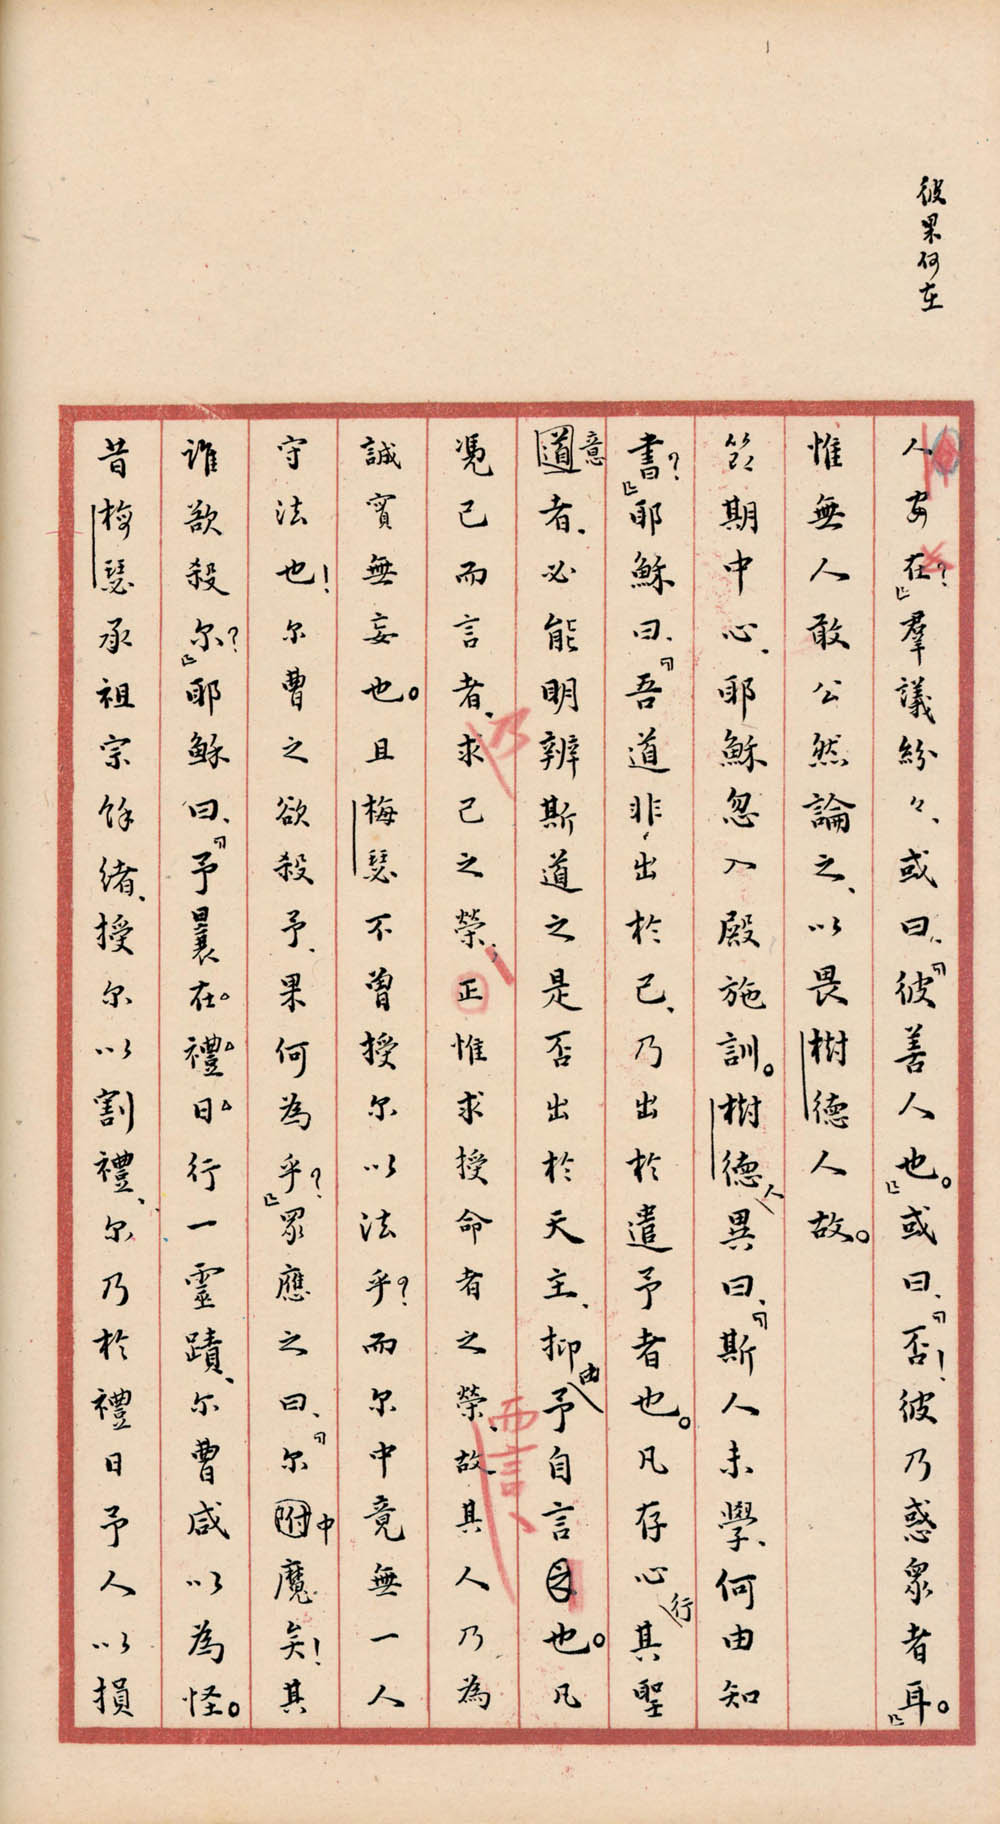 彼果何在
人安在？」羣議紛々、或曰、「彼善人也。」或曰、「否！彼乃惑眾者耳。」
惟無人敢公然論之、以畏樹德人故。
節期中心、耶穌忽入殿施訓。樹德人異曰、「斯人未學、何由知
書？」耶穌曰、「吾道非出於己、乃出於遣予者也。凡存心行其聖
道意者、必能明辨斯道之是否出於天主、抑由予自言也。凡
憑己而言者、乃求己之榮；正惟求授命者之榮、故其人乃為
誠實無妄也。且梅瑟不曾授尔以法乎？而尔中竟無一人
守法也！尔曹之欲殺予、果何為乎？」眾應之曰、「尔附中魔矣！其
誰欲殺尔？」耶穌曰、「予曩在禮日行一靈蹟、尔曹咸以為怪。
昔梅瑟承祖宗餘緒、授尔以割禮、尔乃於禮日予人以損